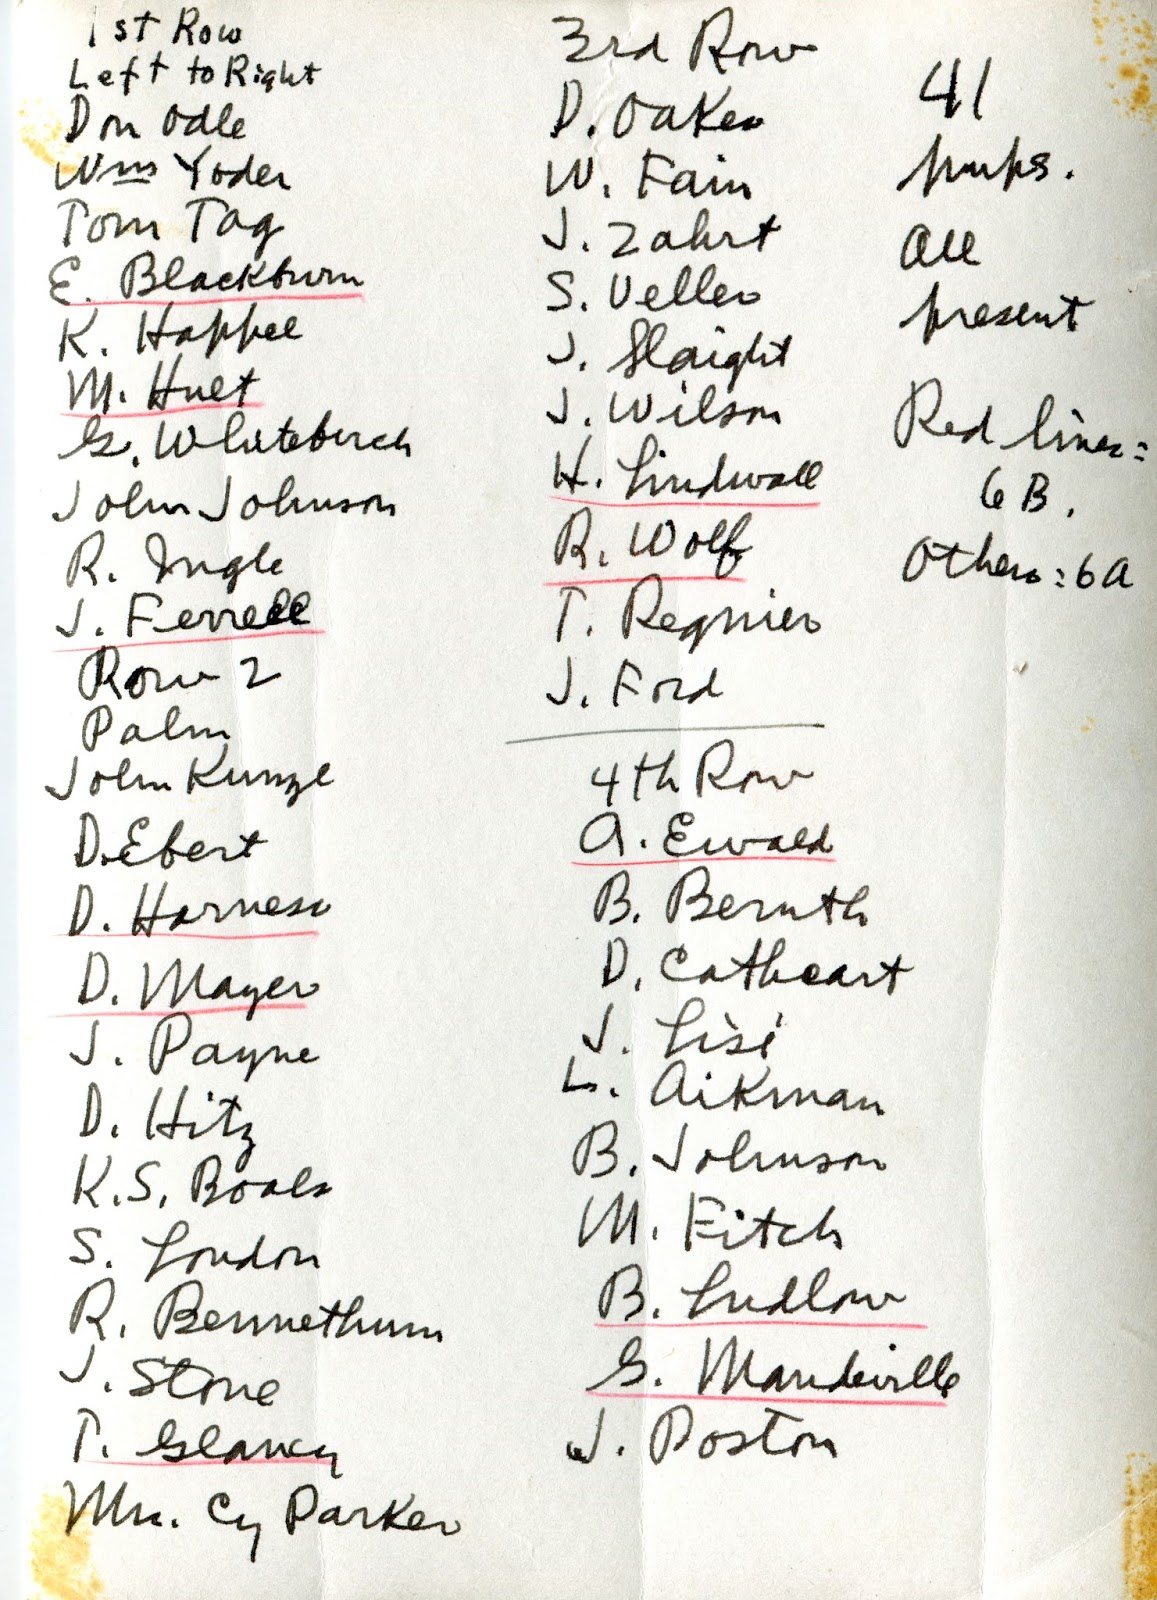 1st Row
Left to Right
Don Odle
Wm Yoder
Tom Tag
E. Blackburn
K. Happel
M. Huet
G. Whiteburch
John Johnson
R. Ingle
J. Ferrell
Row 2
Palm
John Kunzl
D. Ebert
D. Harness
D. Mayer
J. Payne
D. Hitz
K.S. Boals
S. London
R. Bennethum
J. Stone
T. Glancy
Mr. Cy Parker
3rd Row
D. Oakes
W. Fain
J. Zahrt
S. Velleo
J. Slaight
J. Wilson
H. Lindwall
R. Wolf
T. Regnier
J. Ford
4th Row
A. Ewald
B. Bernth
D. Cathcart
J. Lisi
L. Aikman
B. Johnson
M. Fitch
B. Ludlow
G. Mandeville
J. Poston
41
pups.
All
present
Red lines =
6 B.
Others = 6A